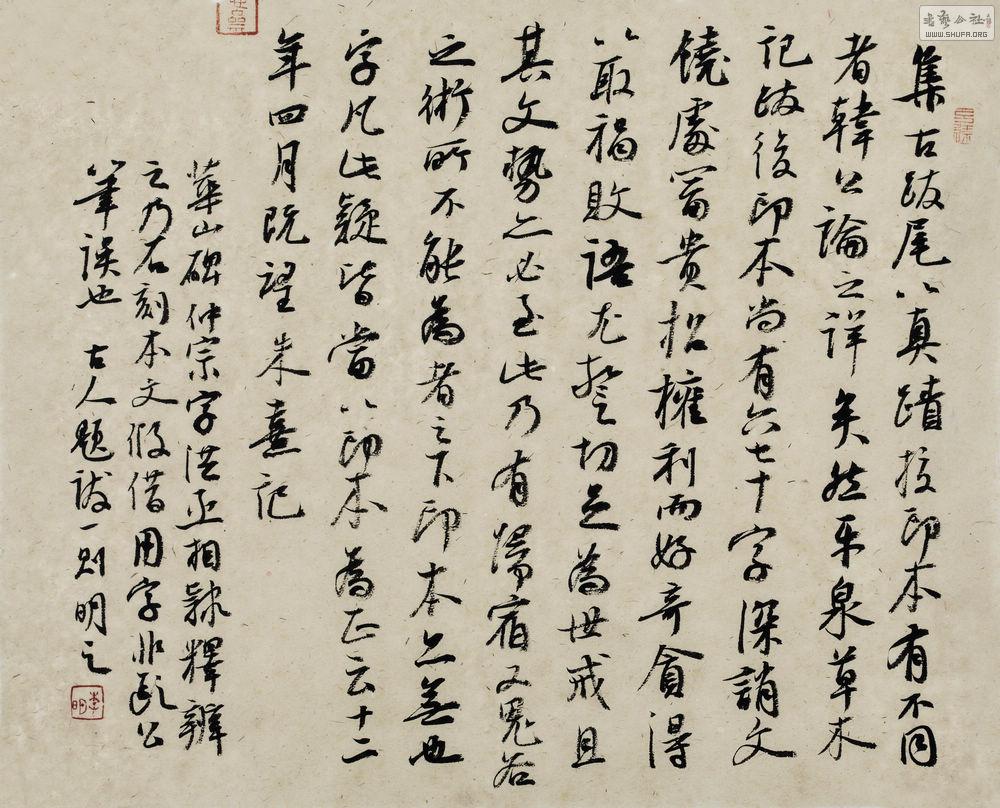 集古跋尾以真蹟校印本有不同
者韓公論之詳矣然平泉草木
記跋後印本尚有六七十字深誚文
饒處富貴招權利而好奇貪得
以取禍敗語尤警切足為世戒且
其文勢亦必至此乃有歸宿又鬼谷
之術所不能為者之下印本亦無也
字凡此疑皆當以印本為正云十二
年四月既望朱熹記
華山碑仲宗字洪丞相隸釋辨
之乃石刻本文假借用字非歐公
筆誤也 古人題跋一則明之
李明
書藝公社
WWW.SHUFA.ORG